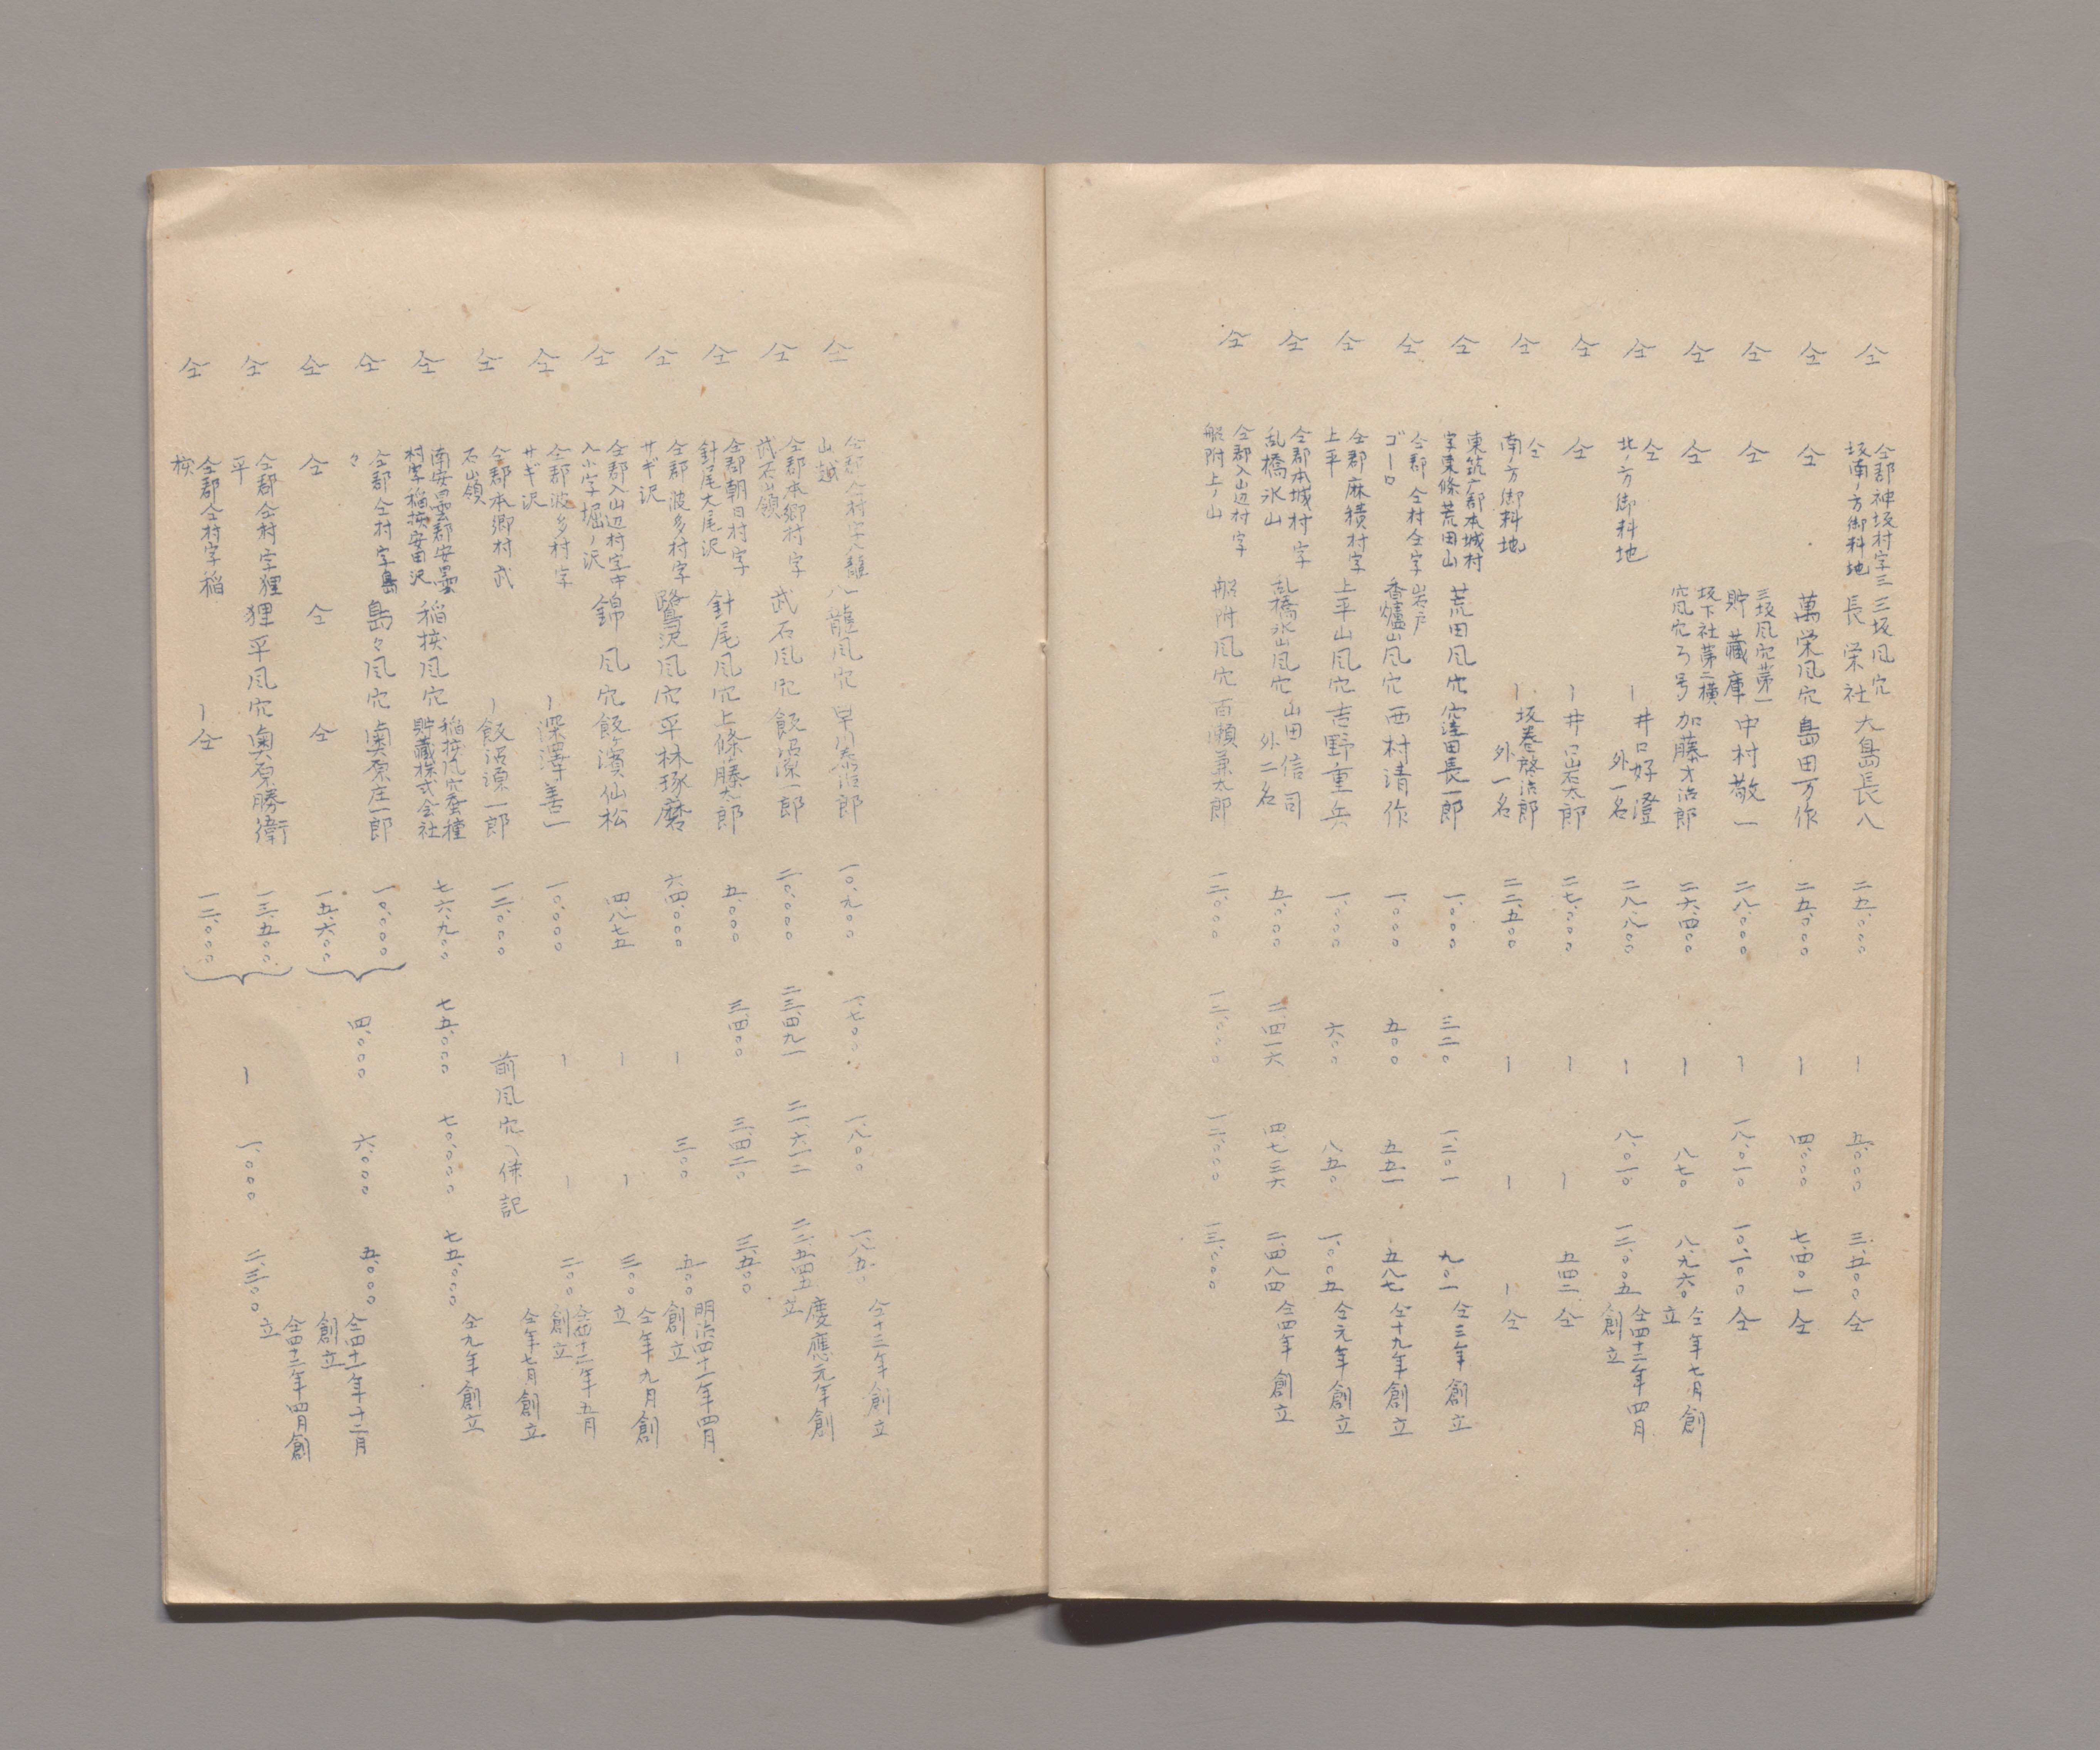 仝 仝郡神坂村字三坂南ノ方御料地 三坂風穴長栄社 大島長八 二五.〇〇〇 ー 五.〇〇〇 三.五〇〇 仝
仝 仝 萬栄風穴 島田万作 二五.〇〇〇 ー 四.〇〇〇 七.四〇一 仝
仝 仝 三坂風穴第一貯蔵庫 中村敬一 二八.〇〇〇 ー 一八.〇一〇 一〇.一〇〇 仝
仝 仝 坂下社第二横 風穴ろ号 加藤才治郎 二六.四〇〇 ー 八七〇 八.九六〇 仝年七月創立
仝 仝北ノ方御料地 ー 井口好澄外一名 二八.八〇〇 ー 八.〇一〇 一二.〇〇五 仝四十二年四月創立
仝 仝 ー 井口岩太郎 二七.〇〇〇 ー ー 五四二 仝
仝 仝南ノ方御料地 ー 坂巻啓治郎外一名 二二.五〇〇 ー ー ー 仝
仝 東筑广郡本城村字東條荒田山 荒田風穴 窪田長一郎 一.〇〇〇 三二〇 一.二〇一 九〇一 仝三年創立
仝 仝郡仝村仝字ゴーロ 岩戸香爐山風穴 西村清作 一.〇〇〇 五〇〇 五五一 五八七 仝十九年創立
仝 仝郡麻績村字上平 上平山風穴 吉野重兵 一.〇〇〇 六〇〇 八五〇 一.〇〇五 仝元年創立
仝 仝郡本城村字乱橋氷山 乱橋氷山風穴 山田信司外二名 五.〇〇〇 二.四一六 四.七三六 二.四八四 仝四年創立
仝 仝郡入山辺村字船附上ノ山 船附風穴 百瀬兼太郎 一二.〇〇〇 一二.〇〇〇 一二.〇〇〇 一三.〇〇〇
仝 仝郡仝村字八龍山越 八龍風穴 早川治郎 一〇.九〇〇 一.七〇〇 一.八〇〇 一.八五〇 仝十二年創立
仝 仝郡本郷村字武石嶺 武石風穴 飯沼源一郎 二〇.〇〇〇 二三.四九一 二一.六一二 二二.五四五 慶應元年創立
仝 仝郡朝日村字針尾大尾沢 針尾風穴 上條藤太郎 五.〇〇〇 三.四〇〇 三.四二〇 三.五〇〇
仝 仝郡波多村字サギ沢 鷺沢風穴 平林琢磨 六四.〇〇〇 ー 三〇〇 五〇〇 明治四十一年四月創立
仝 仝郡入山辺村字中入小字堀ノ沢 錦風穴 飯濱仙松 四.八七五 ー ー 三〇〇 仝年九月創立
仝 仝郡波多村字サギ沢 ー 深澤善一 一〇.〇〇〇 ー ー 二〇〇 仝四十二年五月創立
仝 仝郡本郷村武石嶺 ー 飯沼源一郎 一二.〇〇〇 前風穴ヘ併記 仝年七月創立
仝 南安曇郡安曇村字稲核安曲沢 稲核風穴 稲核風穴蚕種貯蔵株式会社 七六.九〇〇 七五.〇〇〇 七〇.〇〇〇 七五.〇〇〇 仝九年創立
仝 仝郡仝村字島々 島々風穴 奥原庄一郎 一〇.〇〇〇 四.〇〇〇 六.〇〇〇 五.〇〇〇 仝四十一年十二月創立
仝 仝 仝 仝 一五.六〇〇
仝 仝郡仝村字狸平 狸平風穴 奥原勝衛 一三.五〇〇 ー 一.〇〇〇 二.三〇〇 仝四十二年四月創立
仝 仝郡仝村字稲核 ー 仝 一二.〇〇〇